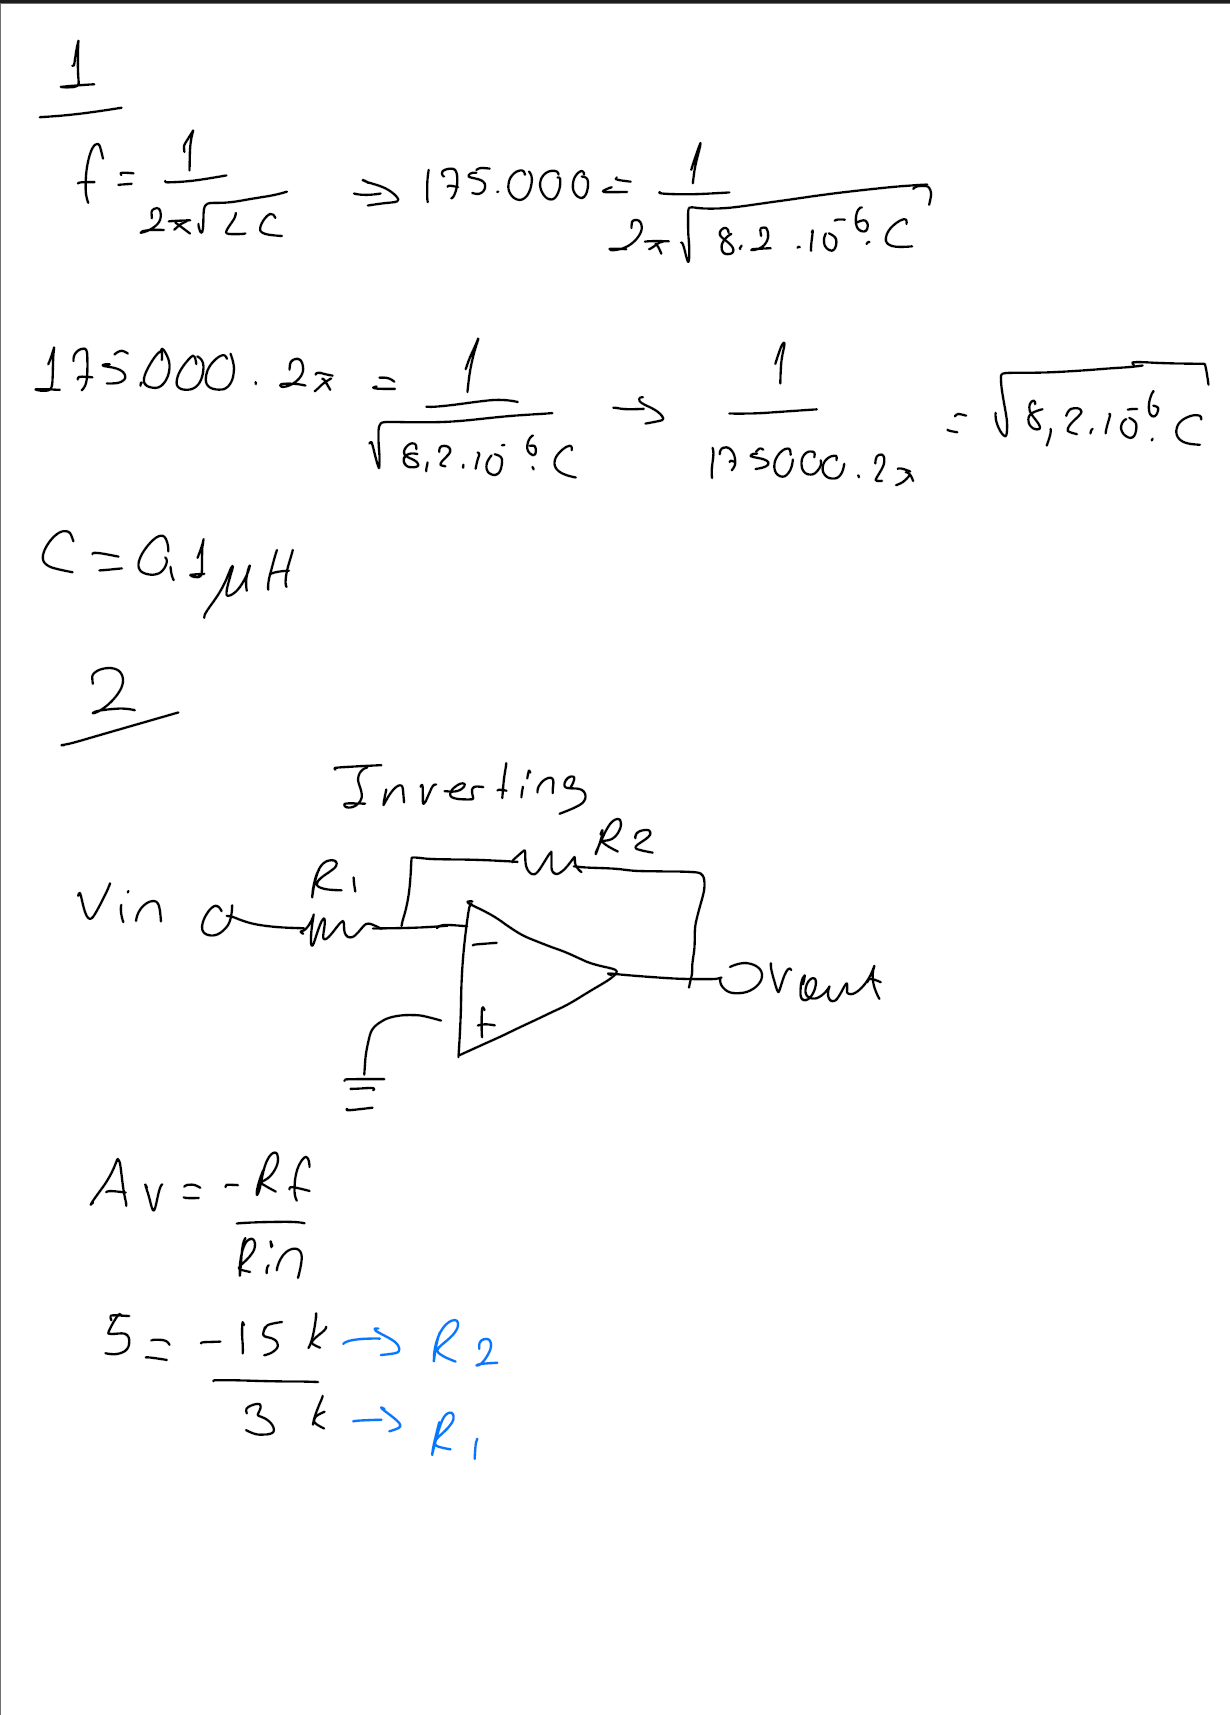 1
f = 1/2π√LC ⇒ 175.000 = 1/2π√8.2.10^-6.C
175000.2π = 1/√8,2.10^-6.C → 1/175000.2π = √8,2.10^-6.C
C = 0,1μH
2
Inverting
R2
R1
Vin
-
Vout
+
Av = -Rf/Rin
5 = -15k/3k
→ R2
→ R1